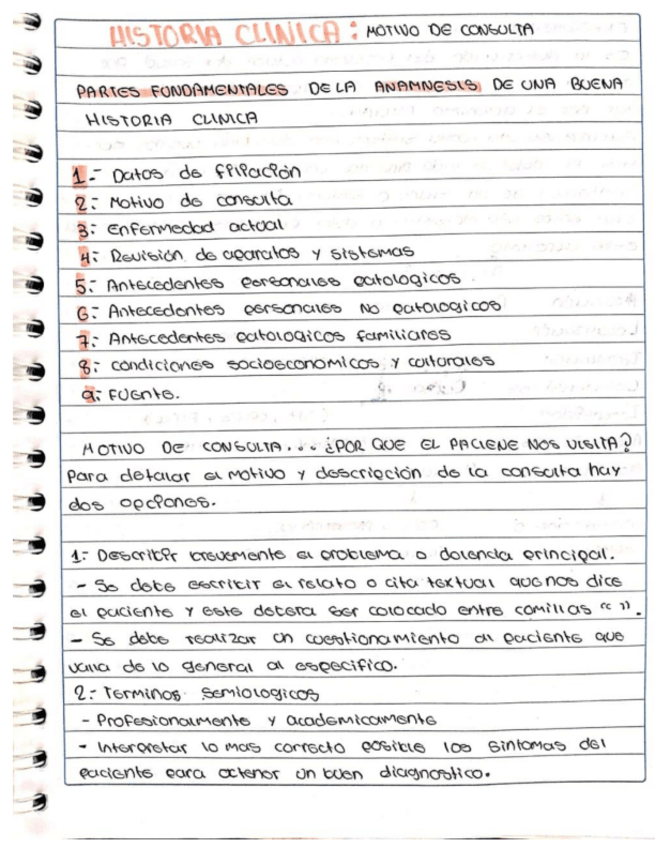 HISTORIA CLINICA : MOTIVO DE CONSULTA
PARTES FUNDAMENTALES DE LA ANAMNESIS DE UNA BUENA
HISTORIA CLINICA
1.- Datos de filiación
2.- Motivo de consulta
3.- Enfermedad actual
4.- Revisión de aparatos y sistemas
5.- Antecedentes personales patologicos
6.- Antecedentes personales No patologicos
7.- Antecedentes patologicos familiares
8.- condiciones socioeconomicos y culturales
9.- Fuente.
MOTIVO DE CONSULTA... ¿POR QUE EL PACIENE NOS VISITA?
Para detalar el motivo y descripción de la consulta hay
dos opciones.
1.- Describir brevemente el problema o dolencia principal.
- Se debe escribir el relato o cita textual que nos dice
el paciente y este debera ser colocado entre comillas “ ”.
- Se debe realizar un cuestionamiento al paciente que
valla de lo general al especifico.
2.- Terminos semiologicos
- Profesionalmente y academicamente
- Interpretar lo mas correcto posible los sintomas del
paciente para obtener un buen diagnostico.